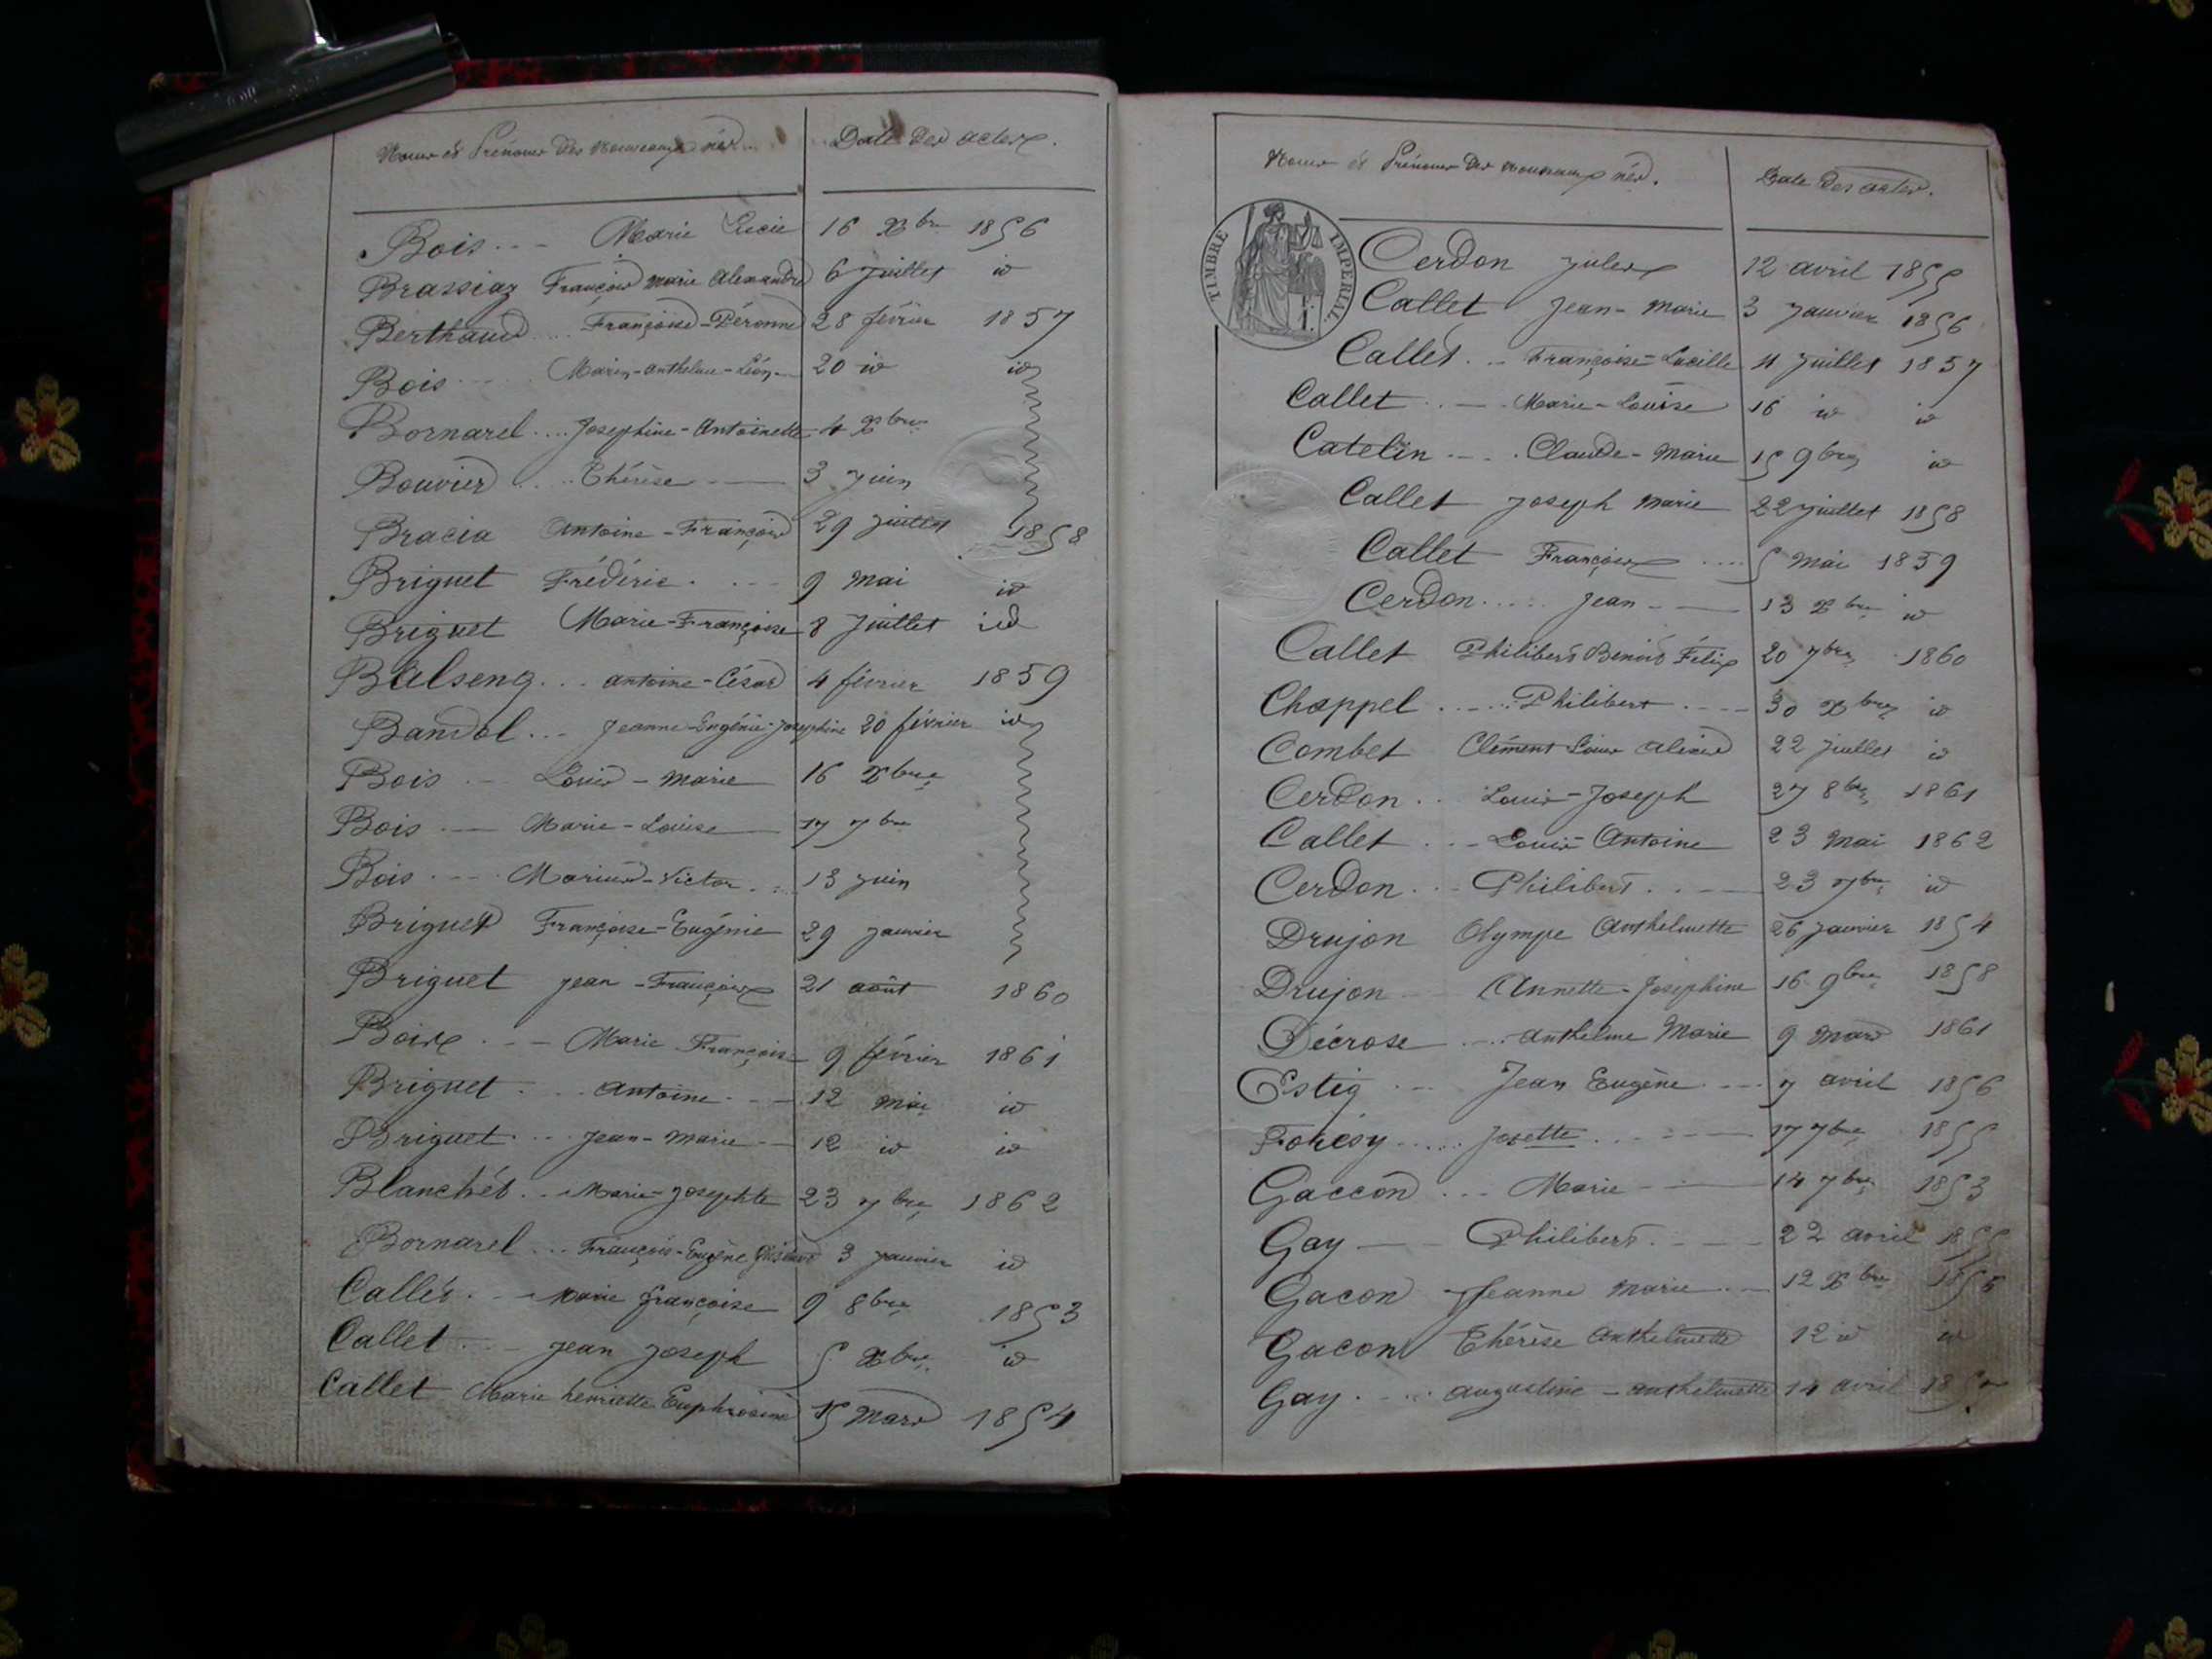 Noms et Prénoms des nouveaux nés. Date des actes.
Bois Marie Lucie 16 Xbre 1856
Brassiaz François marie Alexandre 6 Juillet id
Berthaud Françoise-Péronne 28 février 1857
Bois Marin-anthelme-Léon 20 id id
Bornarel Josephine-Antoinette 4 Xbre
Bouvier Thérèse 3 Juin
Bracia Antoine-François 29 Juillet 1858
Briguet Frédéric 9 Mai id
Briguet Marie-Françoise 8 Juillet id
Balseng antoine-César 4 février 1859
Bandol Jeanne-Eugénie-Josephine 20 février id
Bois Louis-Marie 16 Xbre
Bois Marie-Louise 17 7bre
Bois Marius-Victor 13 Juin
Briguet Françoise-Eugénie 29 Janvier
Briguet Jean-François 21 août 1860
Bois Marie Françoise 9 février 1861
Briguet antoine 12 mai id
Briguet Jean-Marie 12 id id
Blanchet Marie-Josephte 23 7bre 1862
Bornarel François-Eugène 3 Janvier id
Callet Marie françoise 9 8bre 1853
Callet Jean Joseph 5 Xbre id
Callet Marie henriette Euphrosine 15 Mars 1854
Noms et Prénoms des nouveaux nés. Date des actes.
TIMBRE IMPERIAL.
Cerdon Jules 12 avril 1855
Callet Jean-Marie 3 Janvier 1856
Callet Françoise-Lucille 11 Juillet 1857
Callet Marie-Louise 16 id id
Catelin Claude-Marie 15 9bre id
Callet Joseph Marie 22 Juillet 1858
Callet François 5 Mai 1859
Cerdon Jean 13 Xbre id
Callet Philibert Benoit Félix 20 7bre 1860
Chappel Philibert 30 Xbre id
Combet Clément Louis 22 Juillet id
Cerdon Louis-Joseph 27 8bre 1861
Callet Louis Antoine 23 Mai 1862
Cerdon Philibert 23 7bre id
Drujon Olympe Anthelmette 26 Janvier 1854
Drujon Annette-Josephine 16 9bre 1858
Décrose anthelme Marie 9 Mars 1861
Estig Jean Eugène 7 avril 1856
Josette 17 7bre 1855
Gaccon Marie 14 7bre 1853
Gay Philibert 22 avril 1855
Gacon Jeanne Marie 12 Xbre
Gacon Thérèse Anthelmette 12 id id
Gay augustine-anthelmette 14 avril